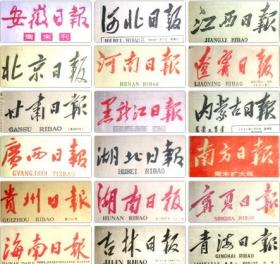 安徽日报
周末刊
河北日报
HEBEI RIBAO
江西日报
JIANGXI RIBAO
北京日报
河南日报
HENAN RIBAO
遼寧日報
LIAONING RIBAO
甘肃日报
GANSU RIBAO
黑龙江日报
内蒙古日报
廣西日報
GVANGJSIH YIZBAU
湖北日報
HUBEI RIBAO
南方日报
周末扩大版
貴州日报
GUIZHOU RIBAO
湖南日报
HUNAN RIBAO
寧夏日报
NINGXIA RIBAO
海南日报
吉林日報
JILIN RIBAO
青海日报
QINGHAI RIBAO